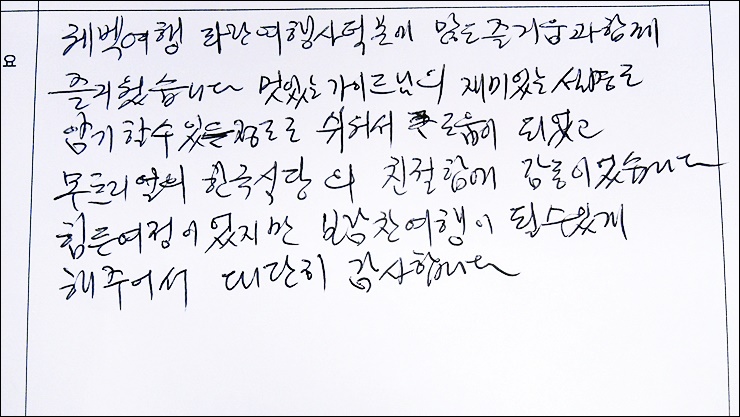 퀘벡여행 파란여행사덕분에 많은즐거움과함께
즐거웠습니다 멋있는가이드님의 재미있는설명으로
암기할수있는정도로 쉬워서 도움이 되었고
몬트리얼의 한국식당의 친절함에 감동이었습니다
힘든여정이었지만 보람찬여행이 될수있게
해주어서 대단히 감사합니다
요